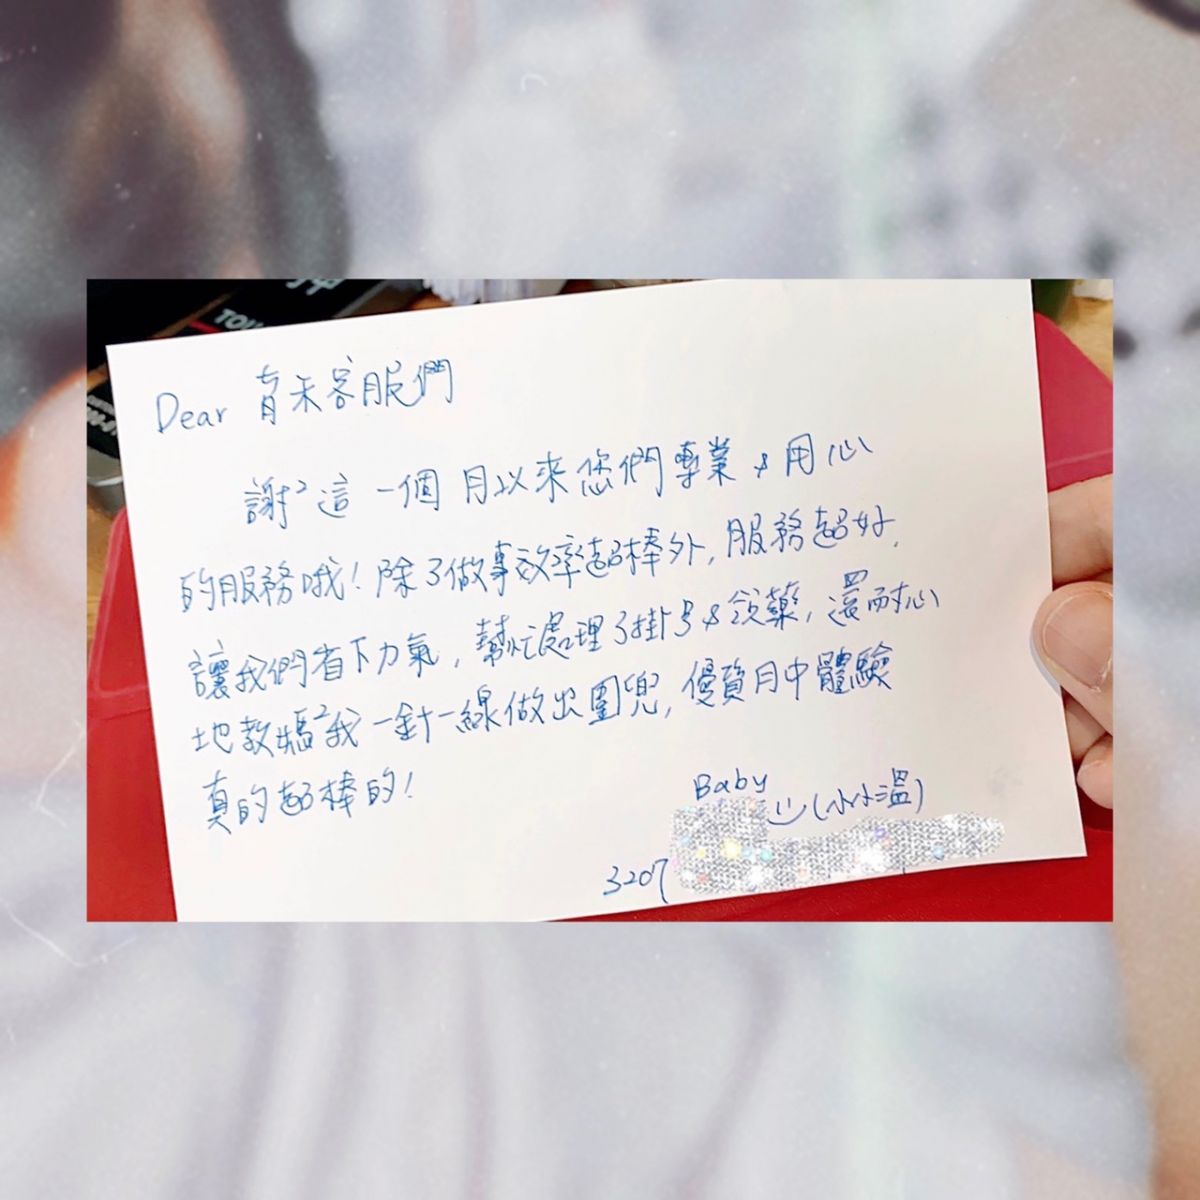 TOU
Dear 育禾客服們
謝²這一個月以來您們專業&用心
的服務哦!除了做事效率超棒外,服務超好,
讓我們省下力氣,幫忙處理了掛号&領藥,還耐心
地教媽²我一針一線做出圍兜,優質月中體驗
真的超棒的!
Baby
(小小溫)
3207